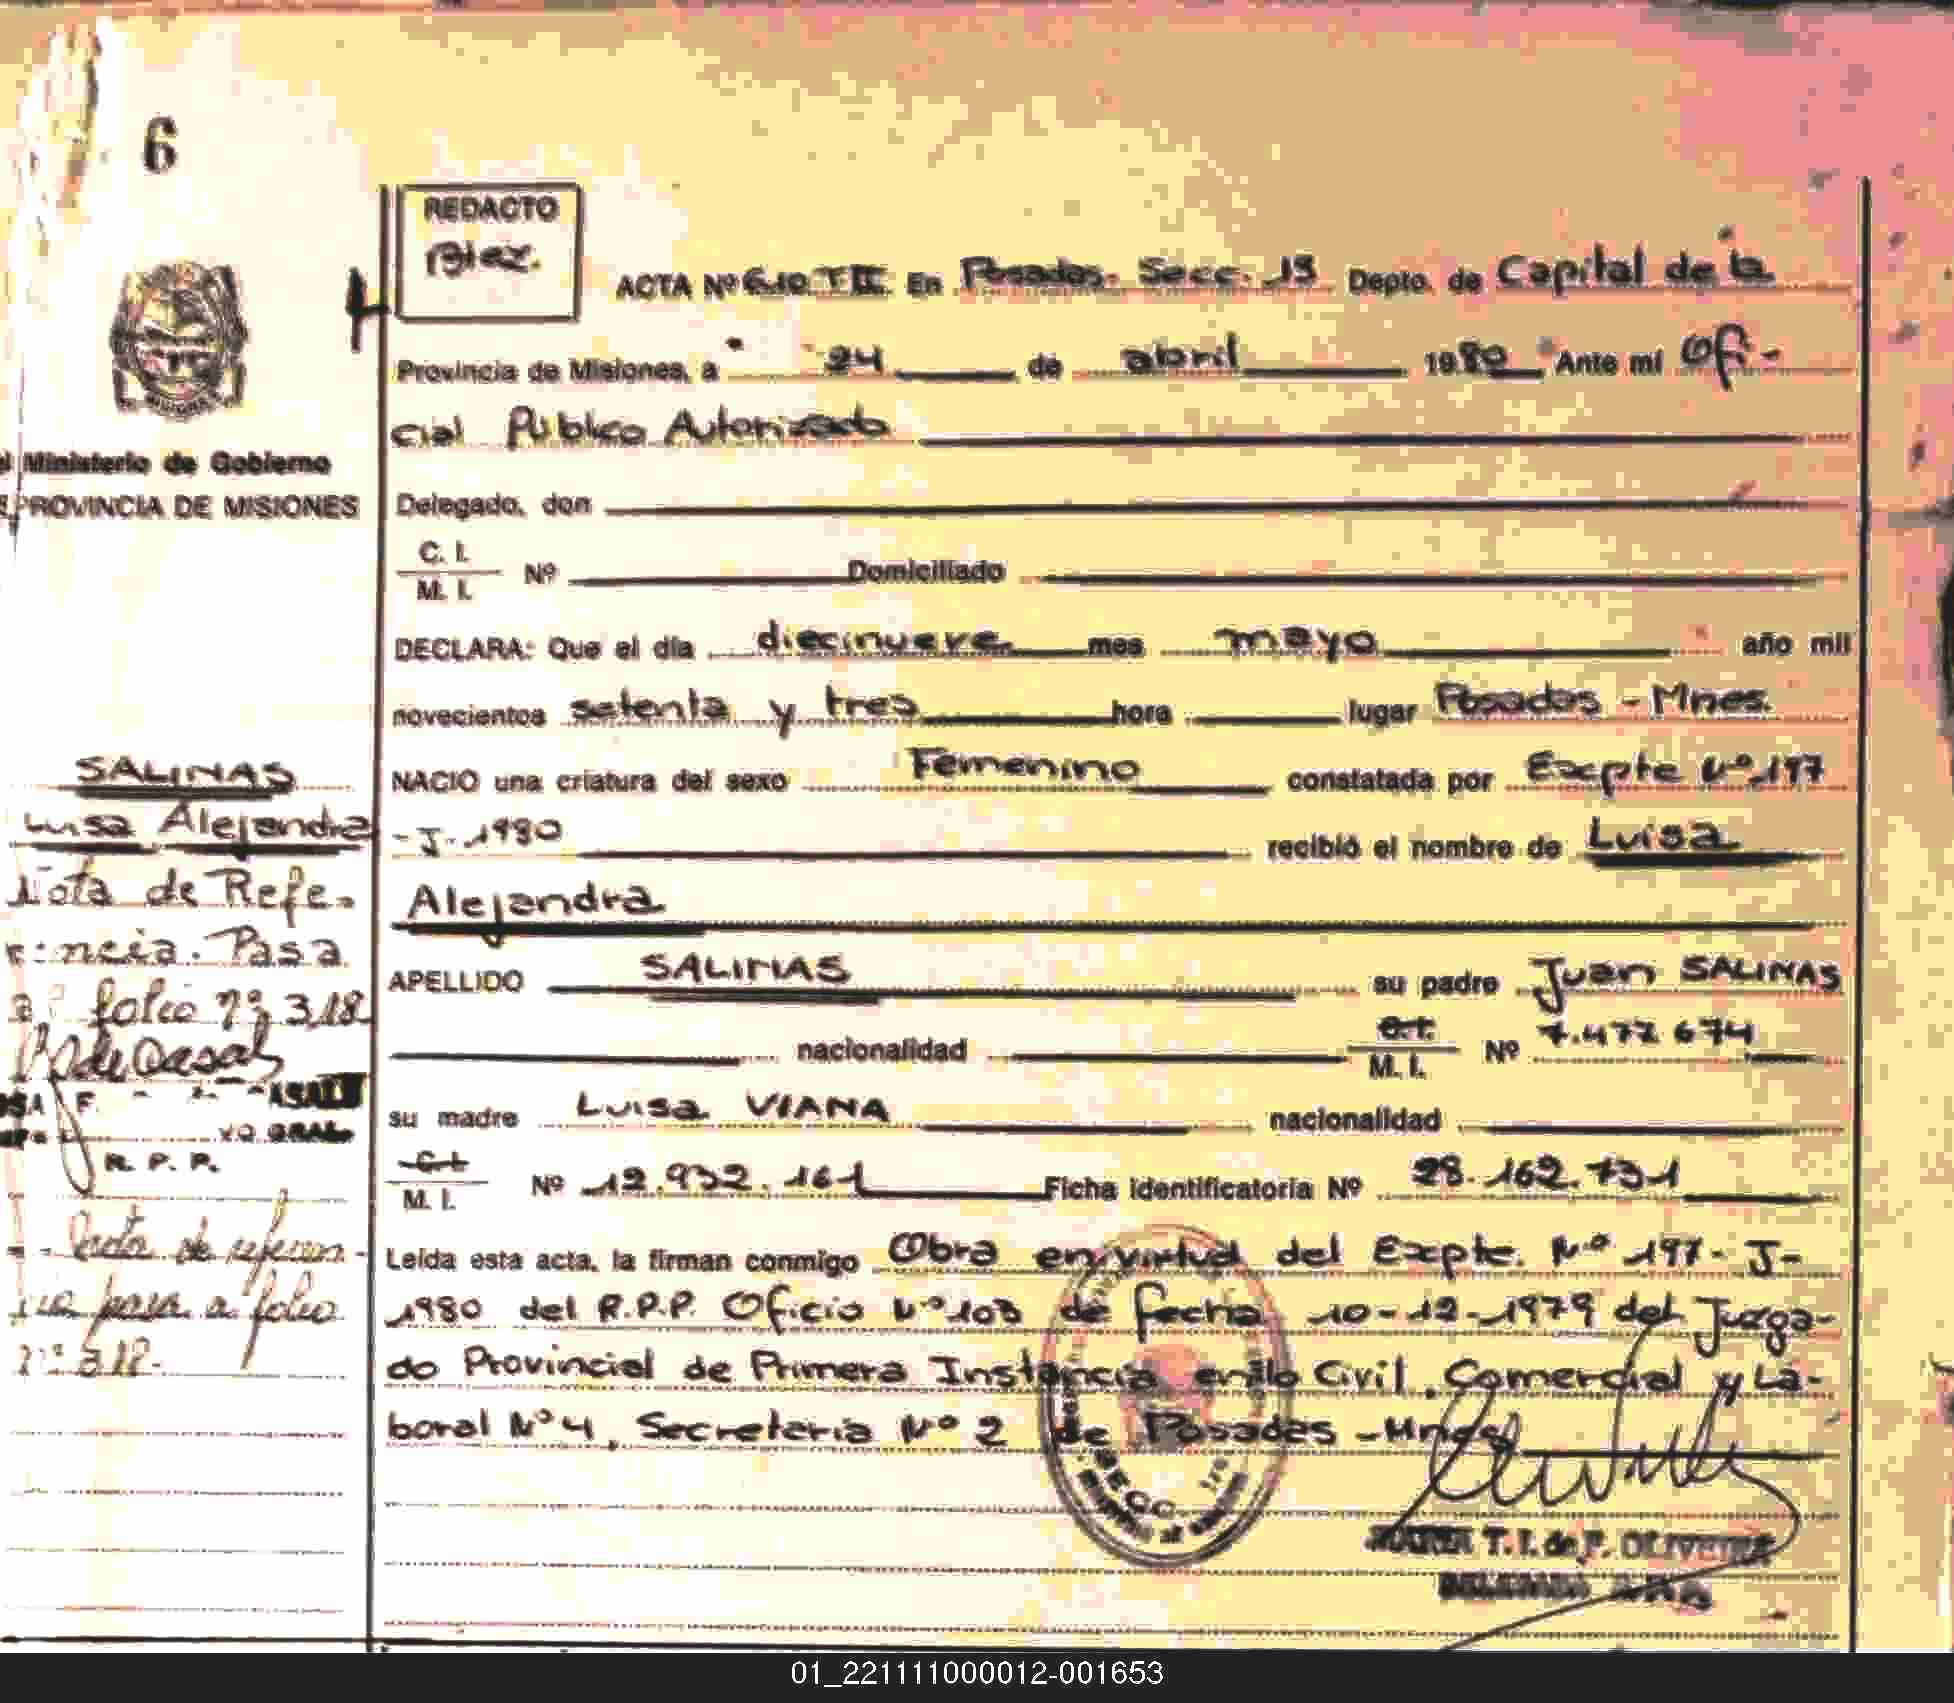 6
REDACTO
Blez.
ACTA Nº 610 TIII En Posadas- Secc- 13 Depto. de Capital de la
Provincia de Misiones, a 24 de abril 1980 Ante mí Ofi-
cial Público Autorizado
Ministerio de Gobierno
PROVINCIA DE MISIONES
Delegado, don
C. I.
M. I.
Nº Domiciliado
DECLARA: Que el día diecinueve mes mayo año mil
novecientos setenta y tres hora lugar Posadas - Mnes.
SALINAS
NACIO una criatura del sexo Femenino constatada por Excpte Nº 197
Luisa Alejandra
- J- 1980 recibió el nombre de Luisa
Nota de Refe-
Alejandra
rencia. Pasa
APELLIDO SALINAS su padre Juan SALINAS
a folio Nº 318
nacionalidad C.I.
M. I. Nº 7.472 674
su madre Luisa VIANA nacionalidad
R. P. P.
C.I.
M. I. Nº 12.932.161 Ficha identificatoria Nº 28.162.731
- Nota de referen-
cia pasa a folio
nº 318.-
Leída esta acta, la firman conmigo Obra en virtud del Excpte. Nº 197- J-
1980 del R.P.P. Oficio Nº 103 de fecha 10-12-1979 del Juzga-
do Provincial de Primera Instancia en lo Civil, Comercial y La-
boral Nº 4, Secretaria Nº 2 de Posadas -Mnes
MARIA T. I. de P. OLIVEIRA
01_221111000012-001653